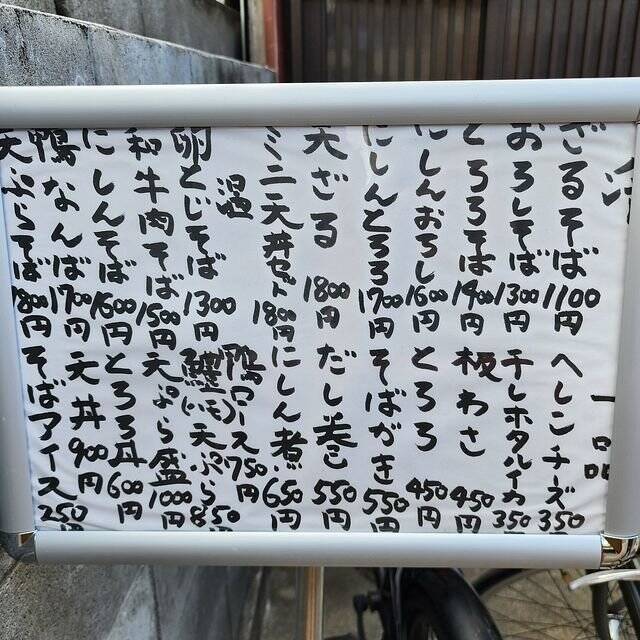 冷
ざるそば 1100円
おろしそば 1300円
とろろそば 1400円
にしんおろし 1600円
にしんとろろ 1700円
天ざる 1800円
ミニ天丼セット 1800円
温
卵とじそば 1300円
和牛肉そば 1500円
にしんそば 1600円
鴨なんば 1700円
天ぷらそば 1800円
一品
へしこチーズ 350円
干しホタルイカ 350円
板わさ 450円
とろろ 450円
そばがき 550円
だし巻 550円
にしん煮 650円
鴨ロース 750円
天ぷら 850
天ぷら盛 1000円
とろろ丼 600円
天丼 900円
そばアイス 250円